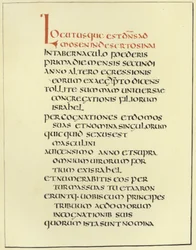 LOCUTUSQUE EST DNS AD
MOSEN IN DESERTO SINAI
IN TABERNACULO FOEDERIS
PRIMA DIE MENSIS SECUNDI
ANNO ALTERO EGRESSIONIS
EORUM EX AEGYPTO DICENS
TOLLITE SUMMAM UNIVERSAE
CONGREGATIONIS FILIORUM
ISRAHEL
PER COGNATIONES ET DOMOS
SUAS ET NOMINA SINGULORUM
QUICQUID SEXUS EST
MASCULINI
A VICENSIMO ANNO ET SUPRA
OMNIUM VIRORUM FOR
TIUM EX ISRAHEL
ET NUMERABITIS EOS PER
TURMAS SUAS TU ET AARON
ERUNTQ: VOBISCUM PRINCIPES
TRIBUUM AC DOMORUM
IN COGNATIONIB SUIS
QUORUM ISTA SUNT NOMINA